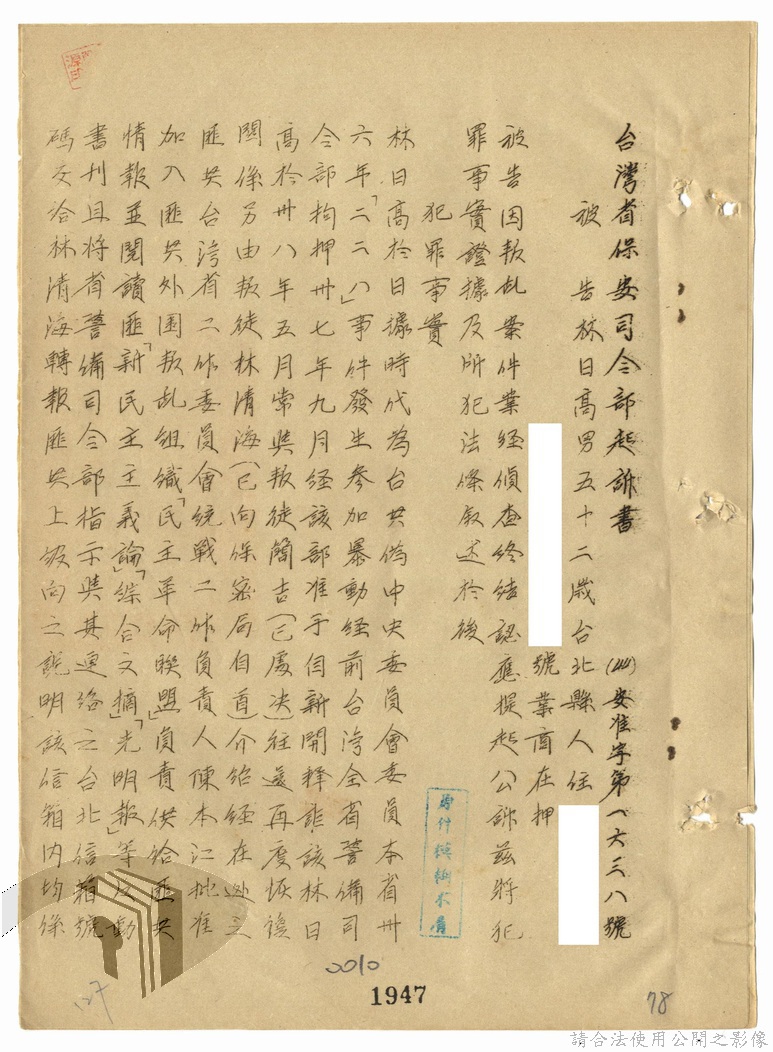 台灣省保安司令部起訴書
(44)安准字第一六三八號
被告林日高男五十二歲台北縣人住
號業商在押
被告因叛乱案件業经偵查终结認應提起公訴茲將犯
罪事實證據及所犯法條叙述於後
犯罪事實
林日高於日據時代為台共偽中央委員會委員本省卅
六年「二二八」事件發生参加暴動经前台灣全省警備司
令部拘押卅七年九月经該部准予自新開釋詎該林日
高於卅八年五月常與叛徒簡吉(已處决)往還再度恢復
関係另由叛徒林清海(已向保密局自首)介绍经在逃之
匪共台湾省工作委員會統戰工作負責人陳本江批准
加入匪共外围叛乱组織「民主革命聯盟」負責供给匪共
情報並閱讀匪「新民主主義論」「綜合文摘」「光明報」等反動
書刊且將省警備司令部指示與其連络之台北信箱號
碼交洽林清海轉報匪共上级向之說明該信箱内均係
為什模糊不清
0010
1947
78
請合法使用公開之影像